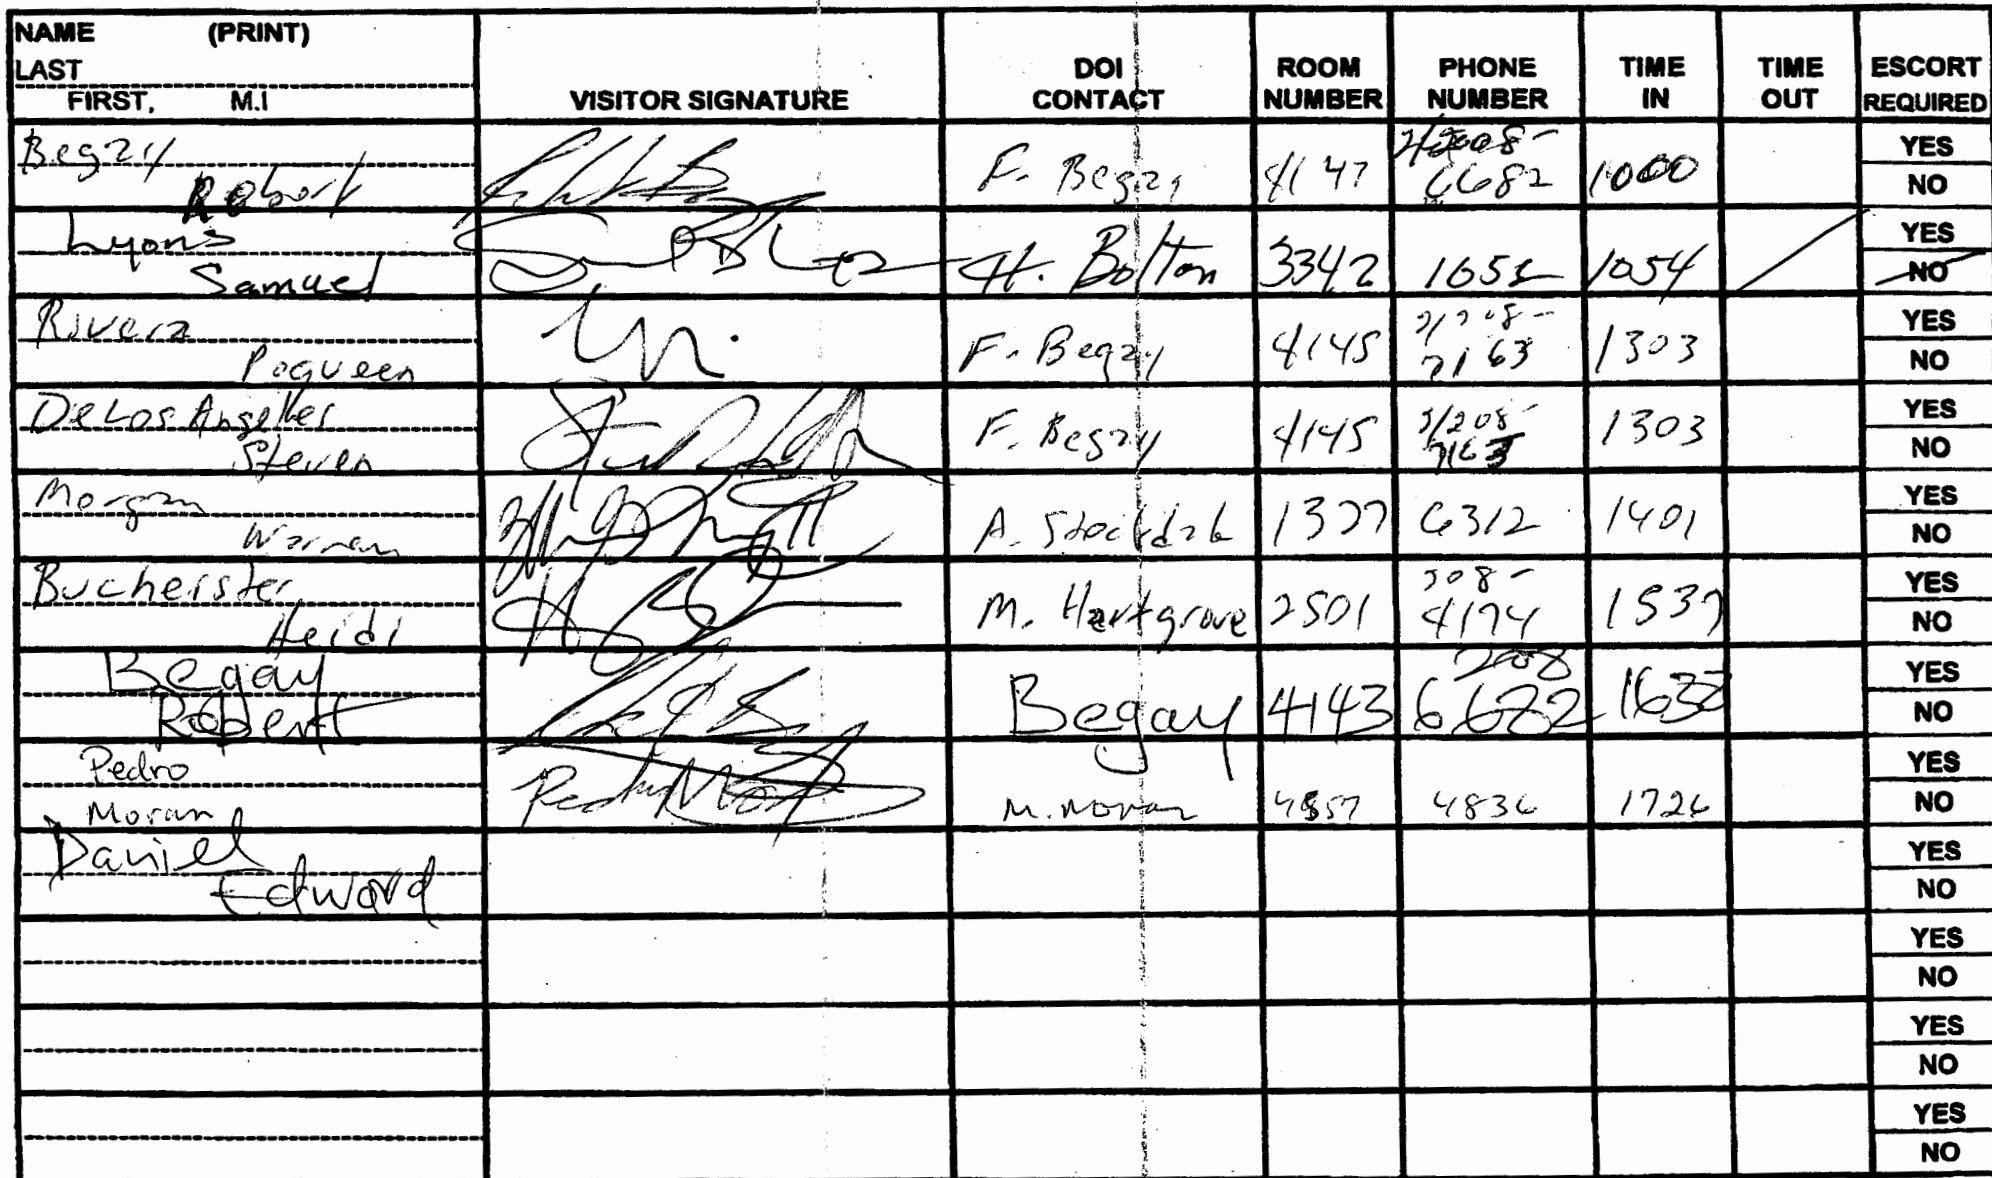 NAME (PRINT)
LAST
FIRST, M.I
VISITOR SIGNATURE
DOI
CONTACT
ROOM
NUMBER
PHONE
NUMBER
TIME
IN
TIME
OUT
ESCORT
REQUIRED
Begay
Robert
F. Begay
4147
6682
1000
YES
NO
Lyons
Samuel
H. Bolton
3342
1054
YES
NO
Rivera
F. Begay
4145
7163
1303
YES
NO
DeLos Angelles
Steven
F. Begay
4145
208-
7163
1303
YES
NO
Morgan
A.
1377
6312
1401
YES
NO
Bucherster
Heidi
M. Hartgrove
2501
208-
4174
1537
YES
NO
Begay
Robert
Begay
4143
208
1638
YES
NO
Pedro
Moran
Pedro Moran
M. Moran
4857
4836
1726
YES
NO
Daniel
Edward
YES
NO
YES
NO
YES
NO
YES
NO